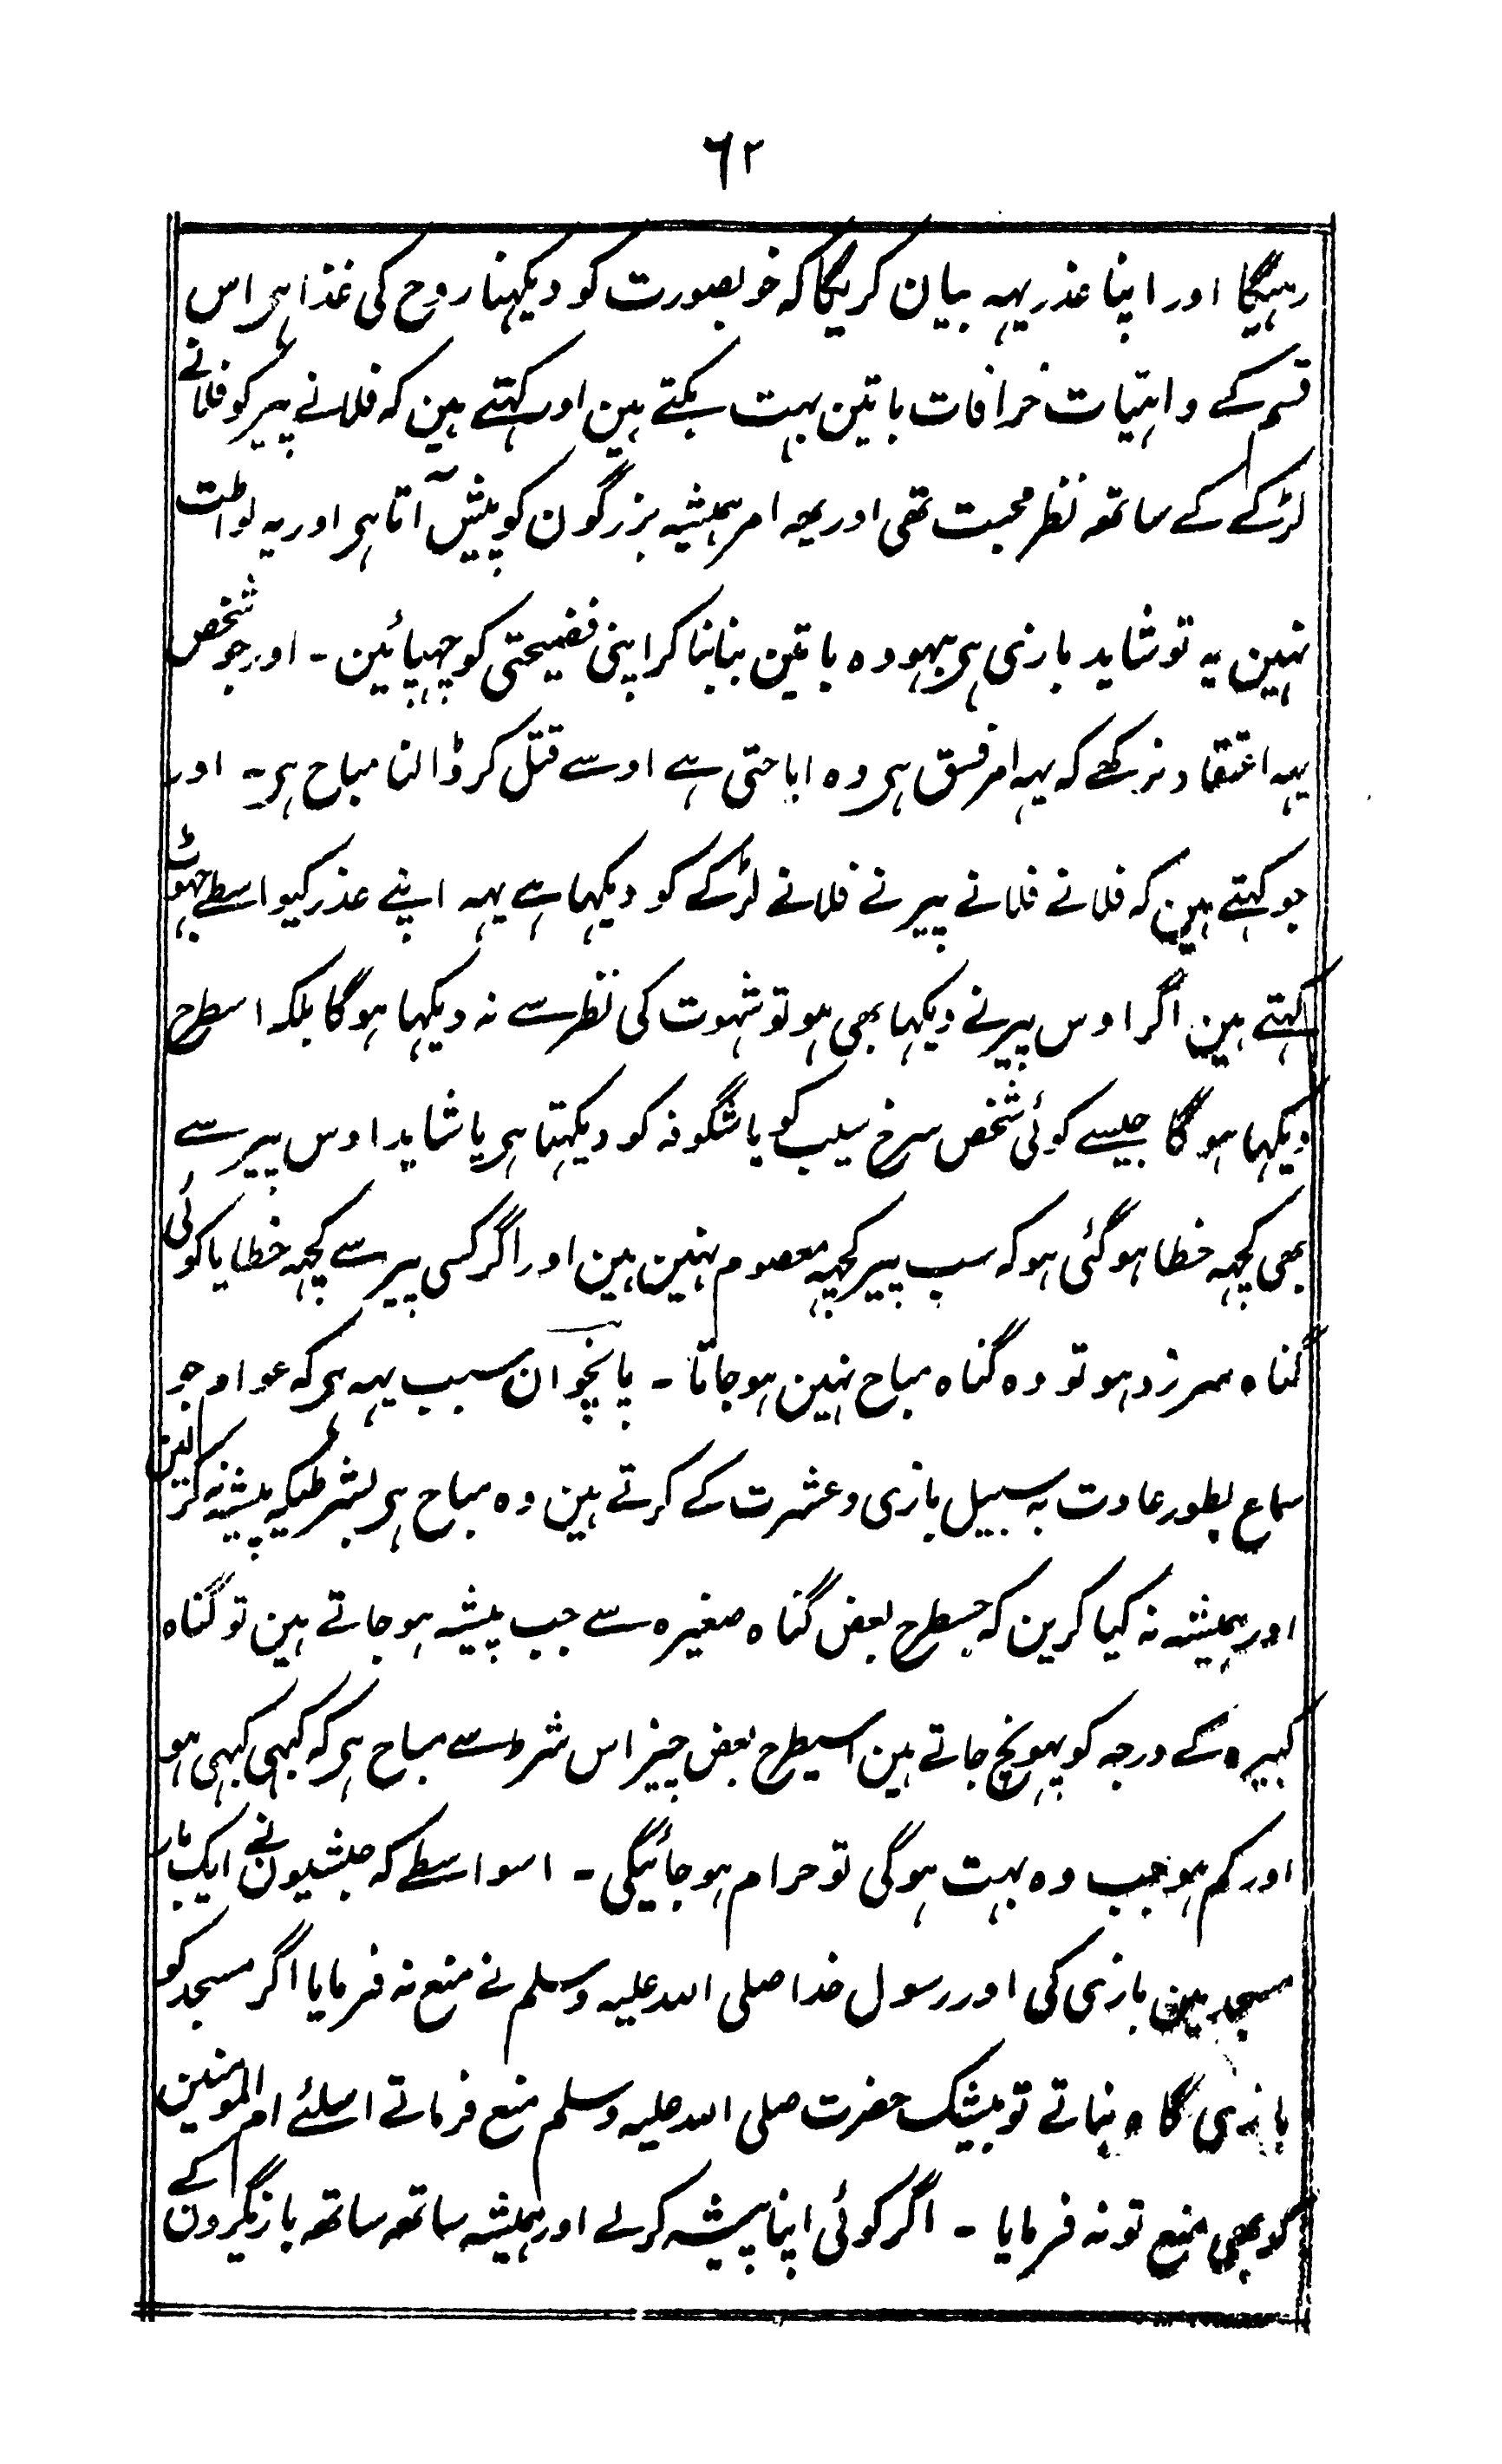 ٦٢
رہیگا اور اپنا عذر یہہ بیان کریگا کہ خوبصورت کو دیکہنا روح کی غذا ہی اس
قسم کے واہیّات خرافات باتین بہت بکتے ہین اور کہتے ہین کہ فلانے پیر کو فلانے
لڑکے کے ساتھہ نظر محبت تھی اور یہہ امر ہمیشہ بزرگون کو پیش آتا ہی اور یہ لواطت
نہین یہ تو شاہد بازی ہی بیہودہ باتین بنا بنا کر اپنی فضیحتی کو چہپائین ۔ اور جو شخص
یہہ اعتقاد نرکھے کہ یہہ امر فسق ہی وہ اباحتی ہے اوسے قتل کر ڈالنا مباح ہی ۔ اور
جو کہتے ہین کہ فلانے فلانے پیر نے فلانے لڑکے کو دیکہا ہے یہہ اپنے عذر کیواسطے جہوٹ
کہتے ہین اگر اوس پیر نے دیکہا بھی ہو تو شہوت کی نظر سے نہ دیکہا ہوگا بلکہ اسطرح
دیکہا ہوگا جیسے کوئی شخص سرخ سیب کو یا شگوفہ کو دیکہتا ہی یا شاید اوس پیر سے
بھی کچہہ خطا ہوگئی ہو کہ سب پیر کچہہ معصوم نہین ہین اور اگر کسی پیر سے کچہہ خطا یا کوئی
گناہ سرزد ہو تو وہ گناہ مباح نہین ہو جاتا ۔ پانچوان سبب یہہ ہی کہ عوام جو
سماع بطور عادت بہ سبیل بازی و عشرت کے کرتے ہین وہ مباح ہی بشرطیکہ پیشہ نہ کر لین
اور ہمیشہ نہ کیا کرین کہ جسطرح بعض گناہ صغیرہ سے جب پیشہ ہو جاتے ہین تو گناہ
کبیرہ کے درجہ کو پہونچ جاتے ہین اسیطرح بعض چیز اس شرط سے مباح ہی کہ کبہی کبہی ہو
اور کم ہو جب وہ بہت ہوگی تو حرام ہو جائیگی ۔ اسواسطے کہ حبشیون نے ایک بار
مسجد مین بازی کی اور رسول خدا صلی اللہ علیہ وسلم نے منع نہ فرمایا اگر مسجد کو
بازی گاہ بناتے تو بیشک حضرت صلی اللہ علیہ وسلم منع فرماتے اسلئے ام المومنین
کو بھی منع تو نہ فرمایا ۔ اگر کوئی اپنا پیشہ کرلے اور ہمیشہ ساتھہ ساتھہ بازیگرون کے